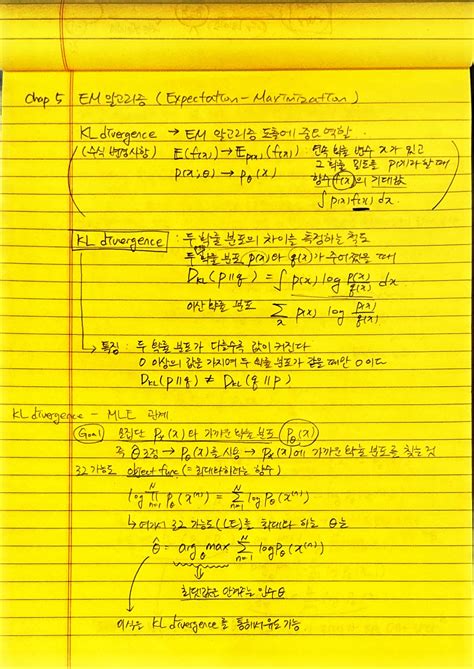 Chap 5 EM 알고리즘 (Expectation-Maximization)
KL divergence → EM 알고리즘 도출에 중요 역할
(수식 변경사항) E(f(x)) → E_p(x)(f(x)) : 연속 확률 변수 x가 있고
P(x;θ) → p_θ(x) 그 확률 밀도를 p(x)라 할 때
함수 f(x)의 기대값
∫ p(x) f(x) dx
KL divergence : 두 확률 분포의 차이를 측정하는 척도
두 확률 분포 p(x)와 q(x)가 주어졌을 때
D_KL(p∥q) = ∫ p(x) log p(x)/q(x) dx
이산 확률 분포 Σ_x p(x) log p(x)/q(x)
→ 특징 : 두 확률 분포가 다를수록 값이 커진다
0 이상의 값을 가지며 두 확률 분포가 같을 때만 0이다
D_KL(p∥q) ≠ D_KL(q∥p)
KL divergence - MLE 관계
Goal 모집단 P*(x)와 가까운 확률 분포 P_θ(x)
즉 θ 조정 → P_θ(x)를 사용 → P*(x)에 가까운 확률 분포를 찾는 것
로그 가능도 object func (= 최대화하려는 함수)
log ∏_{n=1}^N P_θ(x^(n)) = Σ_{n=1}^N log P_θ(x^(n))
↳ 여기서 로그 가능도(LE)를 최대화 하는 θ는
θ̂ = arg_θ max Σ_{n=1}^N log P_θ(x^(n))
최댓값은 안겨주는 인수 θ
이식은 KL divergence를 통해서 유도 가능